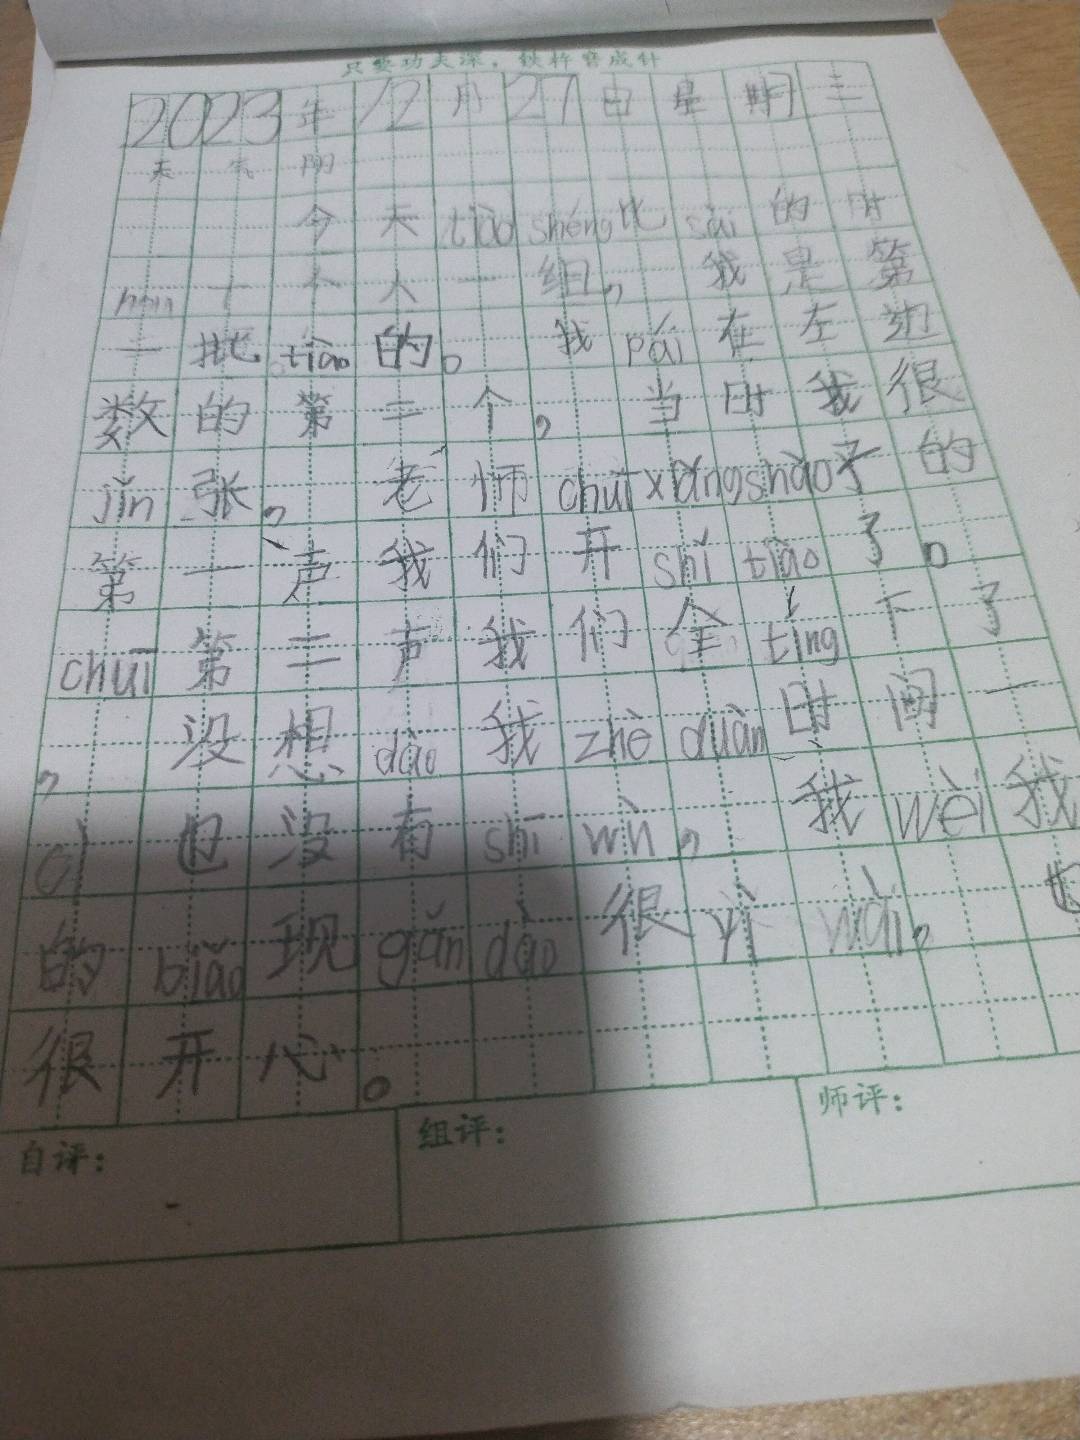 只要功夫深，铁杵磨成针
2023年12月27日星期三
天气阴
今天tiào shéng比sài的时
hòu十个人一组，我是第
一批tiào的。我pái在左边
数的第三个，当时我很
jǐn张，老师chuī xiǎng shào子的
第一声我们开shǐ tiào了。
chuī第二声我们全tíng下了
，没想dào我zhè duàn时间一
cì也没有shī wù，我wèi我
的biǎo现gǎn dào很yì wài，也
很开心。
自评：
组评：
师评：